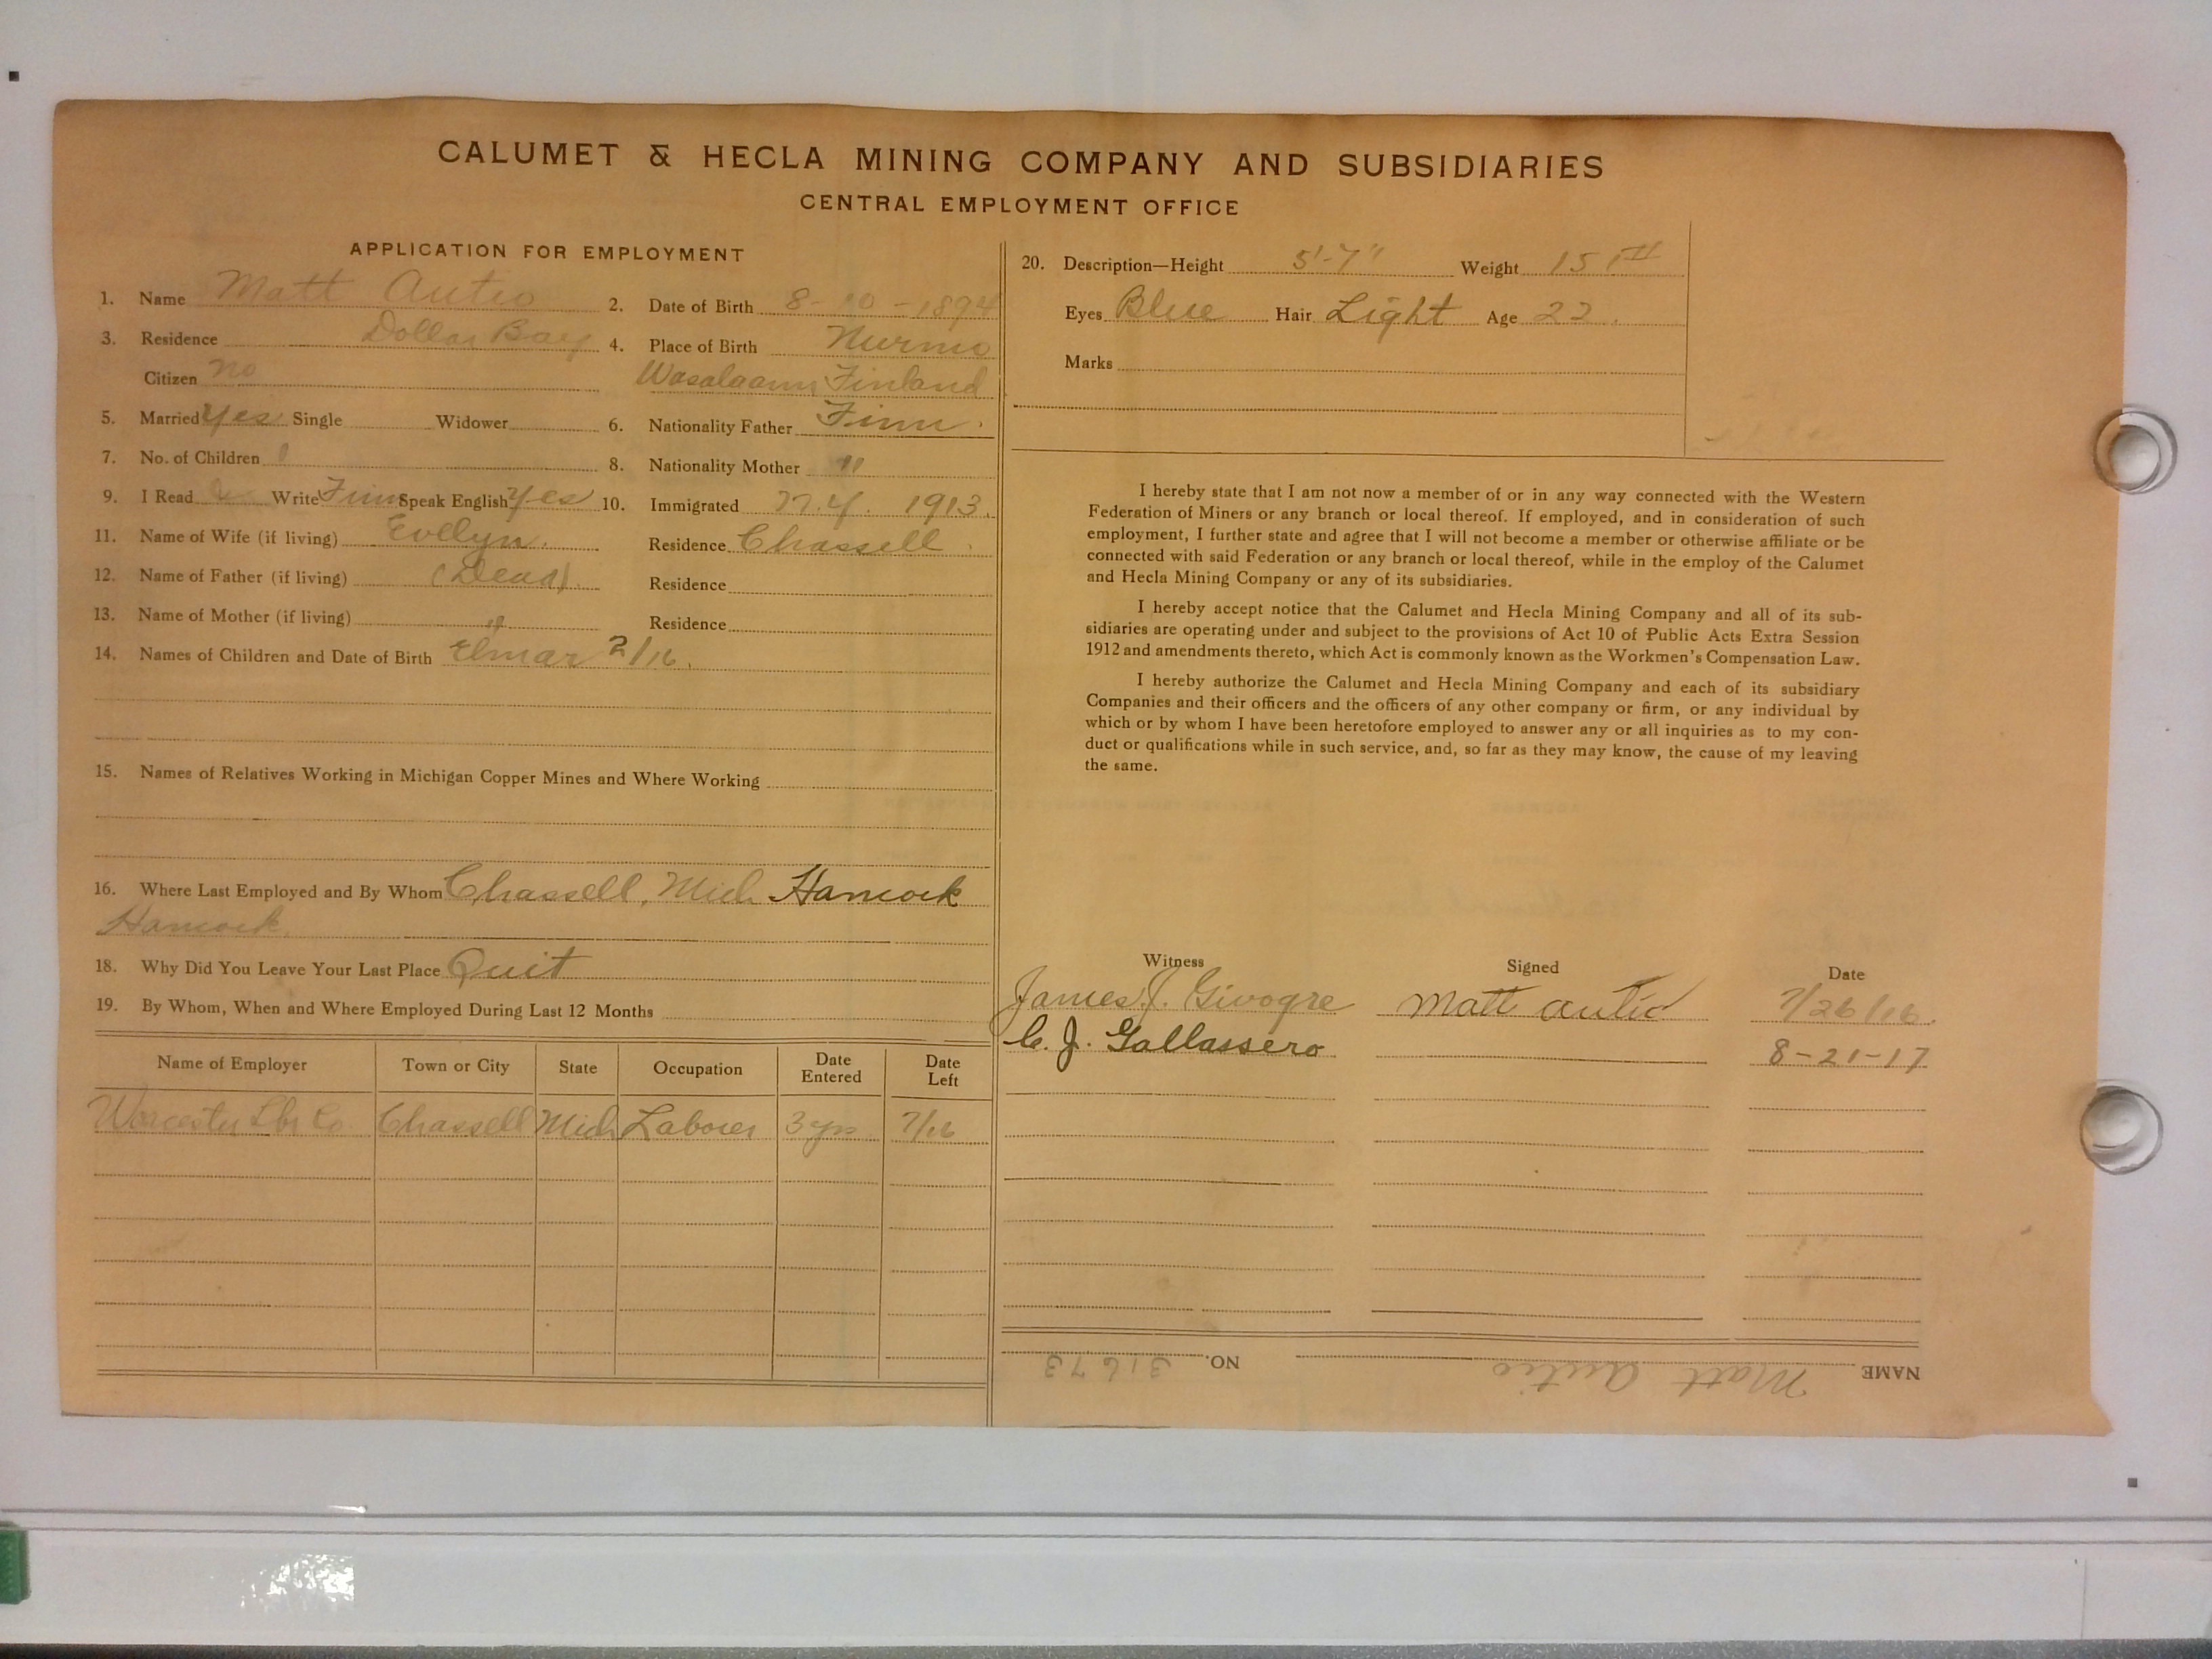 CALUMET & HECLA MINING COMPANY AND SUBSIDIARIES
CENTRAL EMPLOYMENT OFFICE
APPLICATION FOR EMPLOYMENT
1. Name Matt Autio 2. Date of Birth 8-10-1894
3. Residence Dollar Bay 4. Place of Birth Nurmo
Citizen no Wasalaani Finland
5. Married Yes Single Widower 6. Nationality Father Finn.
7. No. of Children 1 8. Nationality Mother "
9. I Read Write Finn Speak English Yes 10. Immigrated N.Y. 1913.
11. Name of Wife (if living) Evelyn. Residence Chassell.
12. Name of Father (if living) (Dead). Residence
13. Name of Mother (if living) " Residence
14. Names of Children and Date of Birth Elmar 2/16.
15. Names of Relatives Working in Michigan Copper Mines and Where Working
16. Where Last Employed and By Whom Chassell, Mich Hancock
Hancock.
18. Why Did You Leave Your Last Place Quit
19. By Whom, When and Where Employed During Last 12 Months
Name of Employer Town or City State Occupation Date Entered Date Left
Worcester Lbr Co. Chassell Mich Laborer 3 yrs 7/16
20. Description—Height 5'-7" Weight 15
Eyes Blue Hair Light Age 22.
Marks
I hereby state that I am not now a member of or in any way connected with the Western
Federation of Miners or any branch or local thereof. If employed, and in consideration of such
employment, I further state and agree that I will not become a member or otherwise affiliate or be
connected with said Federation or any branch or local thereof, while in the employ of the Calumet
and Hecla Mining Company or any of its subsidiaries.
I hereby accept notice that the Calumet and Hecla Mining Company and all of its sub-
sidiaries are operating under and subject to the provisions of Act 10 of Public Acts Extra Session
1912 and amendments thereto, which Act is commonly known as the Workmen's Compensation Law.
I hereby authorize the Calumet and Hecla Mining Company and each of its subsidiary
Companies and their officers and the officers of any other company or firm, or any individual by
which or by whom I have been heretofore employed to answer any or all inquiries as to my con-
duct or qualifications while in such service, and, so far as they may know, the cause of my leaving
the same.
Witness Signed Date
James J. Givogre Matt Autio 7/26/16.
C. J. Gallassero 8-21-17
NAME Matt Autio NO. 31673